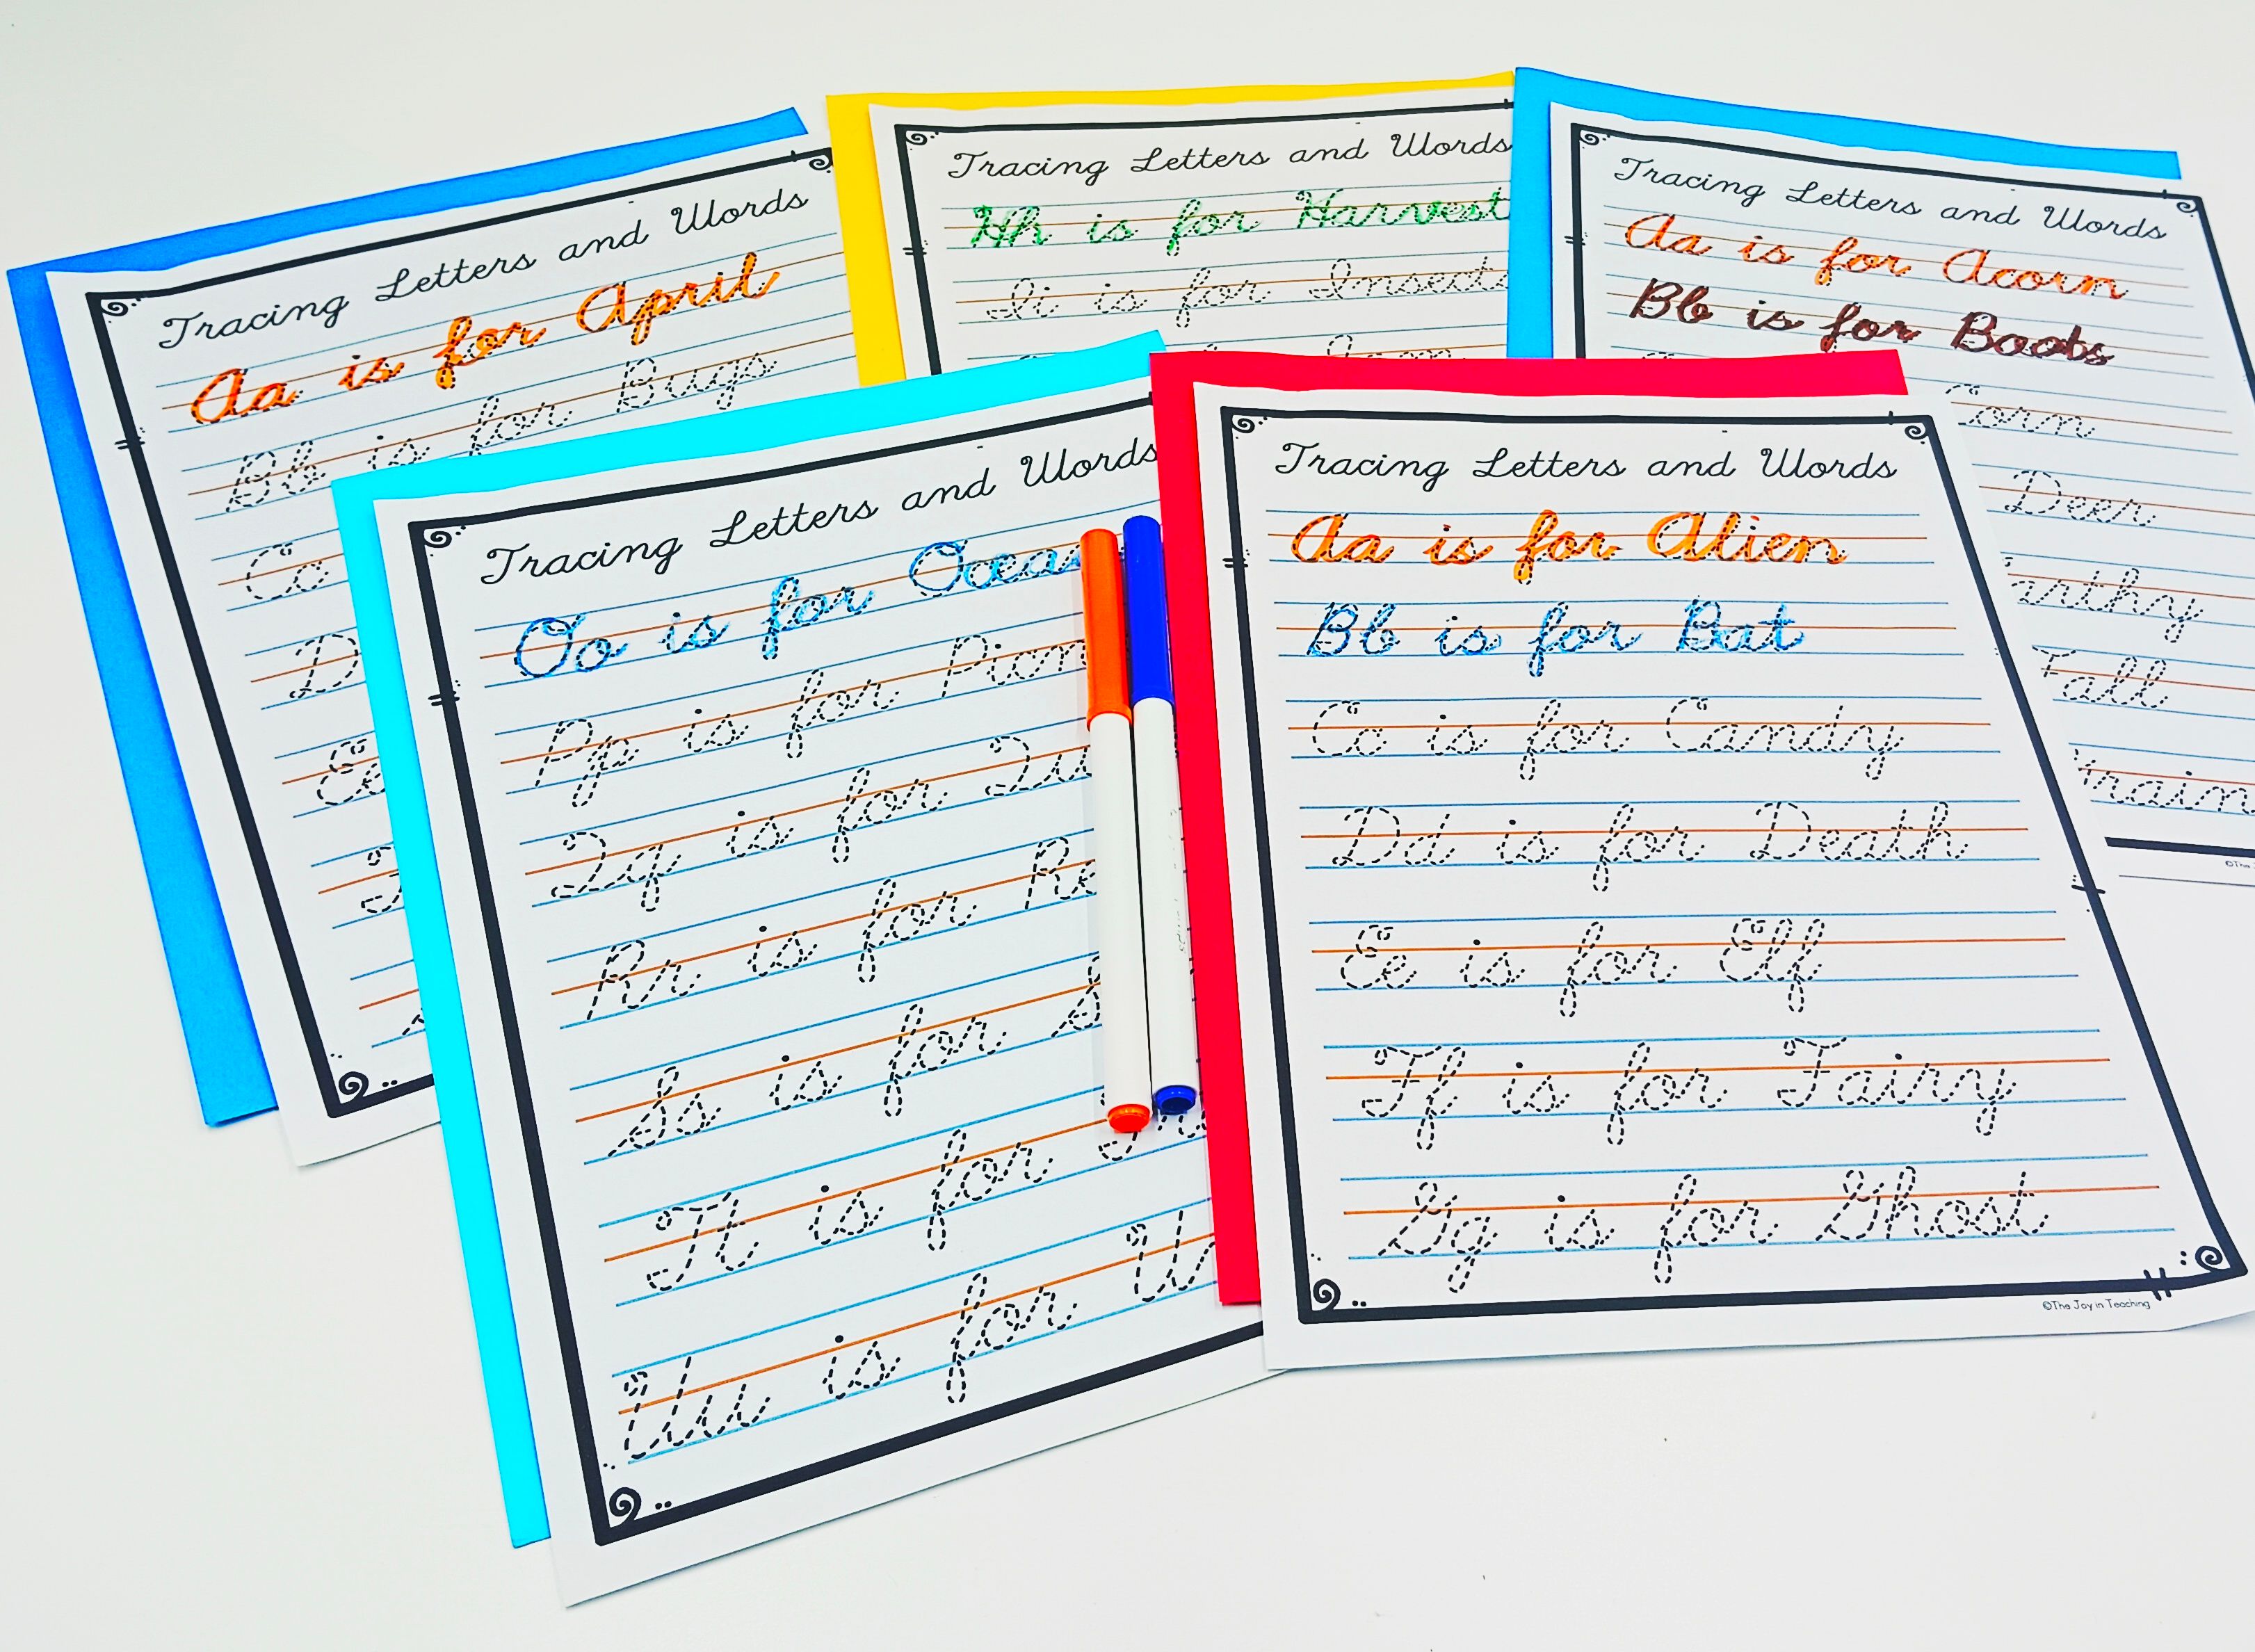 Tracing Letters and Words
Aa is for April
Bb is for Bugs
Cc
D
Ee
Tracing Letters and Words
Hh is for Harvest
Ii is for Insects
Tracing Letters and Words
Aa is for Acorn
Bb is for Boots
Corn
Deer
Earthy
Fall
Tracing Letters and Words
Oo is for Ocean
Pp is for
Qq is for
Rr is for
Ss is for
Tt is for
Uu is for
Tracing Letters and Words
Aa is for Alien
Bb is for Bat
Cc is for Candy
Dd is for Death
Ee is for Elf
Ff is for Fairy
Gg is for Ghost
©The Joy in Teaching